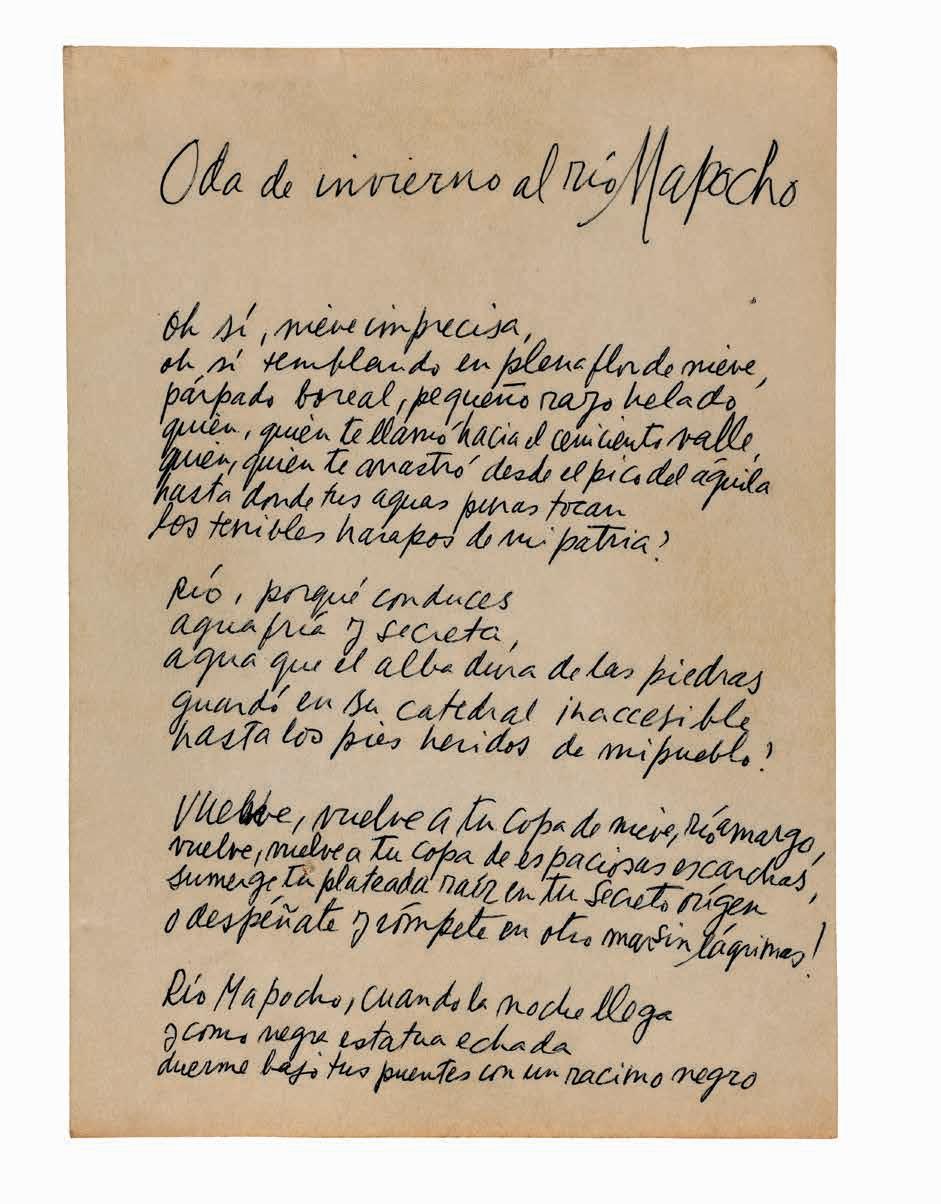 Oda de invierno al río Mapocho
Oh sí, nieve imprecisa,
oh sí temblando en plena flor de nieve,
párpado boreal, pequeño rayo helado
quién, quién te llamó hacia el ceniciento valle,
quién, quién te arrastró desde el pico del águila
hasta donde tus aguas puras tocan
los terribles harapos de mi patria?
Río, porqué conduces
agua fría y secreta,
agua que el alba dura de las piedras
guardó en su catedral inaccesible
hasta los pies heridos de mi pueblo?
Vuelve, vuelve a tu copa de nieve, río amargo,
vuelve, vuelve a tu copa de espaciosas escarchas,
sumerge tu plateada raíz en tu secreto orígen
o despéñate y rómpete en otro mar sin lágrimas!
Río Mapocho, cuando la noche llega
y como negra estatua echada
duerme bajo tus puentes con un racimo negro